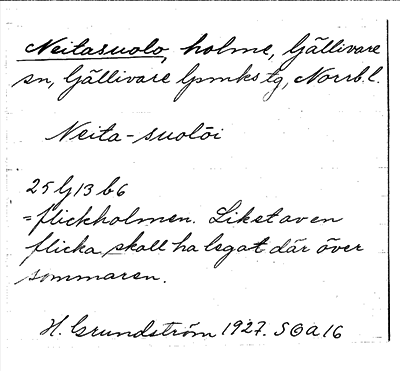 Neitasuolo, holme, Gällivare
sn, Gällivare lpmks tg, Norrb. l.
Neita-suolöi
25 G 13 b 6
=flickholmen. Liket av en
flicka skall ha legat där över
sommaren.
H. Grundström 1927. S O a 16